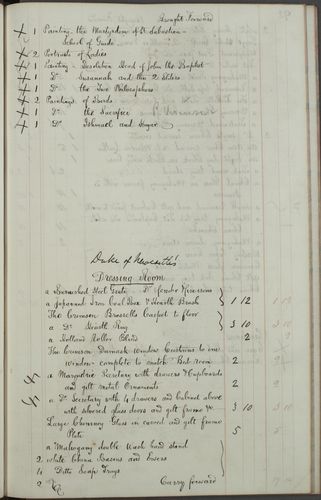 Brought Forward
1 Painting the Martyrdom of St Sebastian -
School of Guido
2 Portraits of Ladies
1 Painting - Head of John the Baptist
1 Do Susannah and the 2 Elders
1 Do the Two Philosophers
2 Paintings of Birds
1 Do the Sacrifice
1 Do Ishmael and Hagar
Duke of Newcastle's
Dressing Room
a Burnished Steel Grate Do fender & Fire irons
a Japanned Iron Coal Box & Hearth Brush 1 12
The Crimson Brussells Carpet to floor
a Do Hearth Rug 3 10
a Holland Roller Blind 2
The Crimson Damask Window Curtains to one
window complete to match Bed room 2
a Marquetrie Secretary with drawers & Cupboards
and gilt metal Ornaments 2
a Do Secretary with 4 drawers and Cabinet above
with silvered glass doors and gilt frame &c 3 10
Large Chimney Glass in carved and gilt frame
Plate 5
a Mahogany double Wash hand stand
2 white China Basins and Ewers
4 Ditto Soap Trays
2 Carry forward